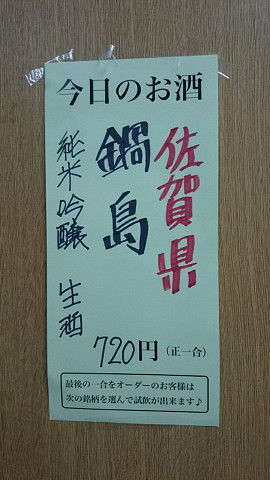 今日のお酒
佐賀県
鍋島
純米吟醸 生酒
720円(正一合)
最後の一合をオーダーのお客様は
次の銘柄を選んで試飲が出来ます♪